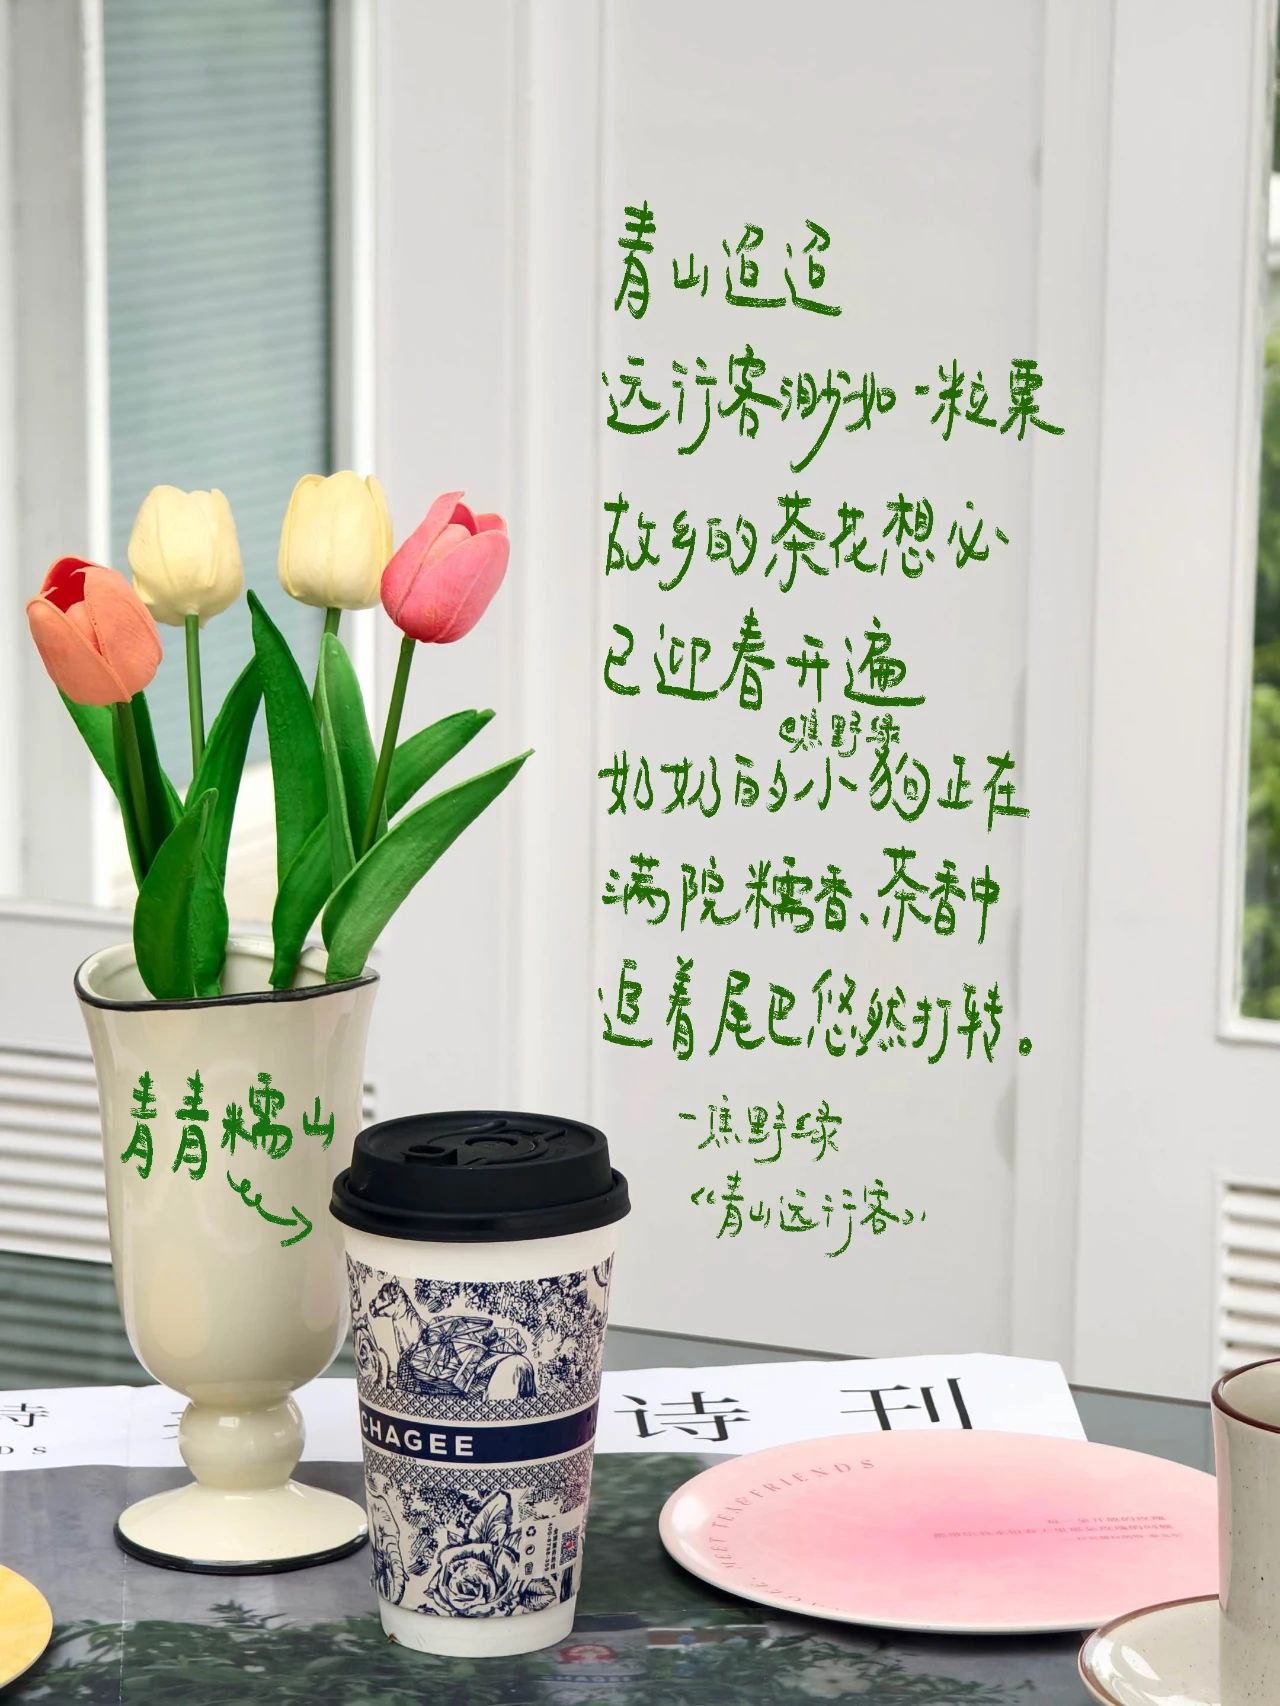 青山迢迢
远行客渺如一粒粟
故乡的茶花想必
已迎春开遍
@蕉野绿
奶奶的小狗正在
满院糯香、茶香中
追着尾巴悠然打转。
-蕉野绿
《青山远行客》
青青糯山
CHAGEE
诗
DS
诗刊
MEET TEA & FRIENDS
CHAGEE